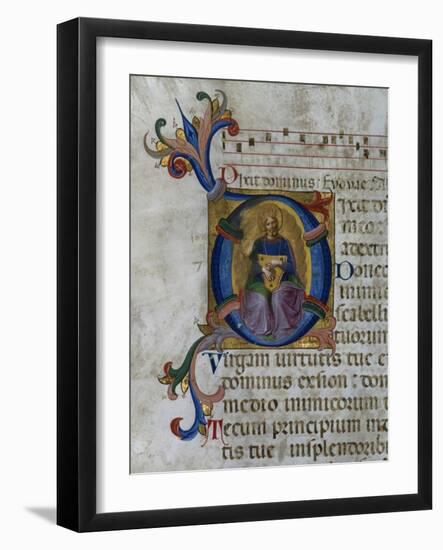 Dixit dominus: Evovae
ixit
adextri
Donec
inimi
scabelli
tuorum
Virgam virtutis tue e
dominus exsion: dom
medio inimicorum
Tecum principium in
tis tue insplendorib